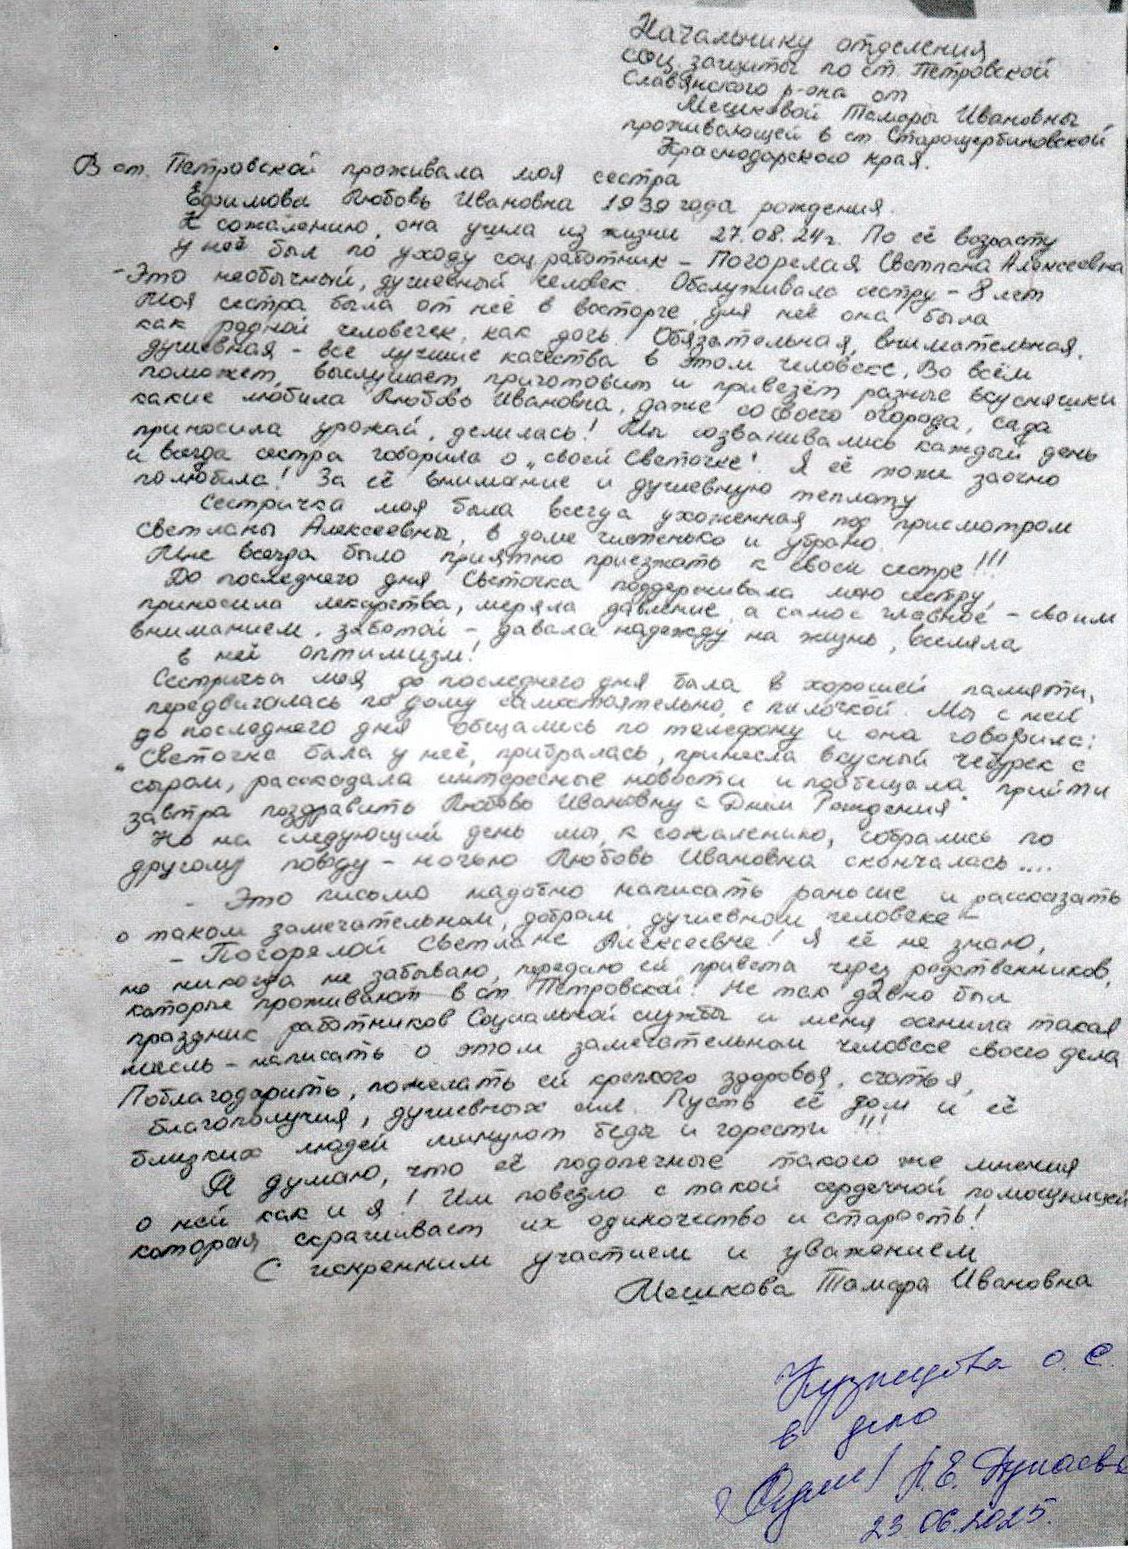 Начальнику отделения
соц. защиты по ст. Петровской
Славянского р-она от
Мешковой Тамары Ивановны
проживающей в ст Старощербиновской
Краснодарского края.
В ст. Петровской проживала моя сестра
Ефимова Любовь Ивановна 1939 года рождения.
К сожалению, она ушла из жизни 27.08.24г. По её возрасту
у неё был по уходу соц работник – Погорелая Светлана Алексеевна
- Это необычный, душевный человек. Обслуживала сестру – 8 лет
Моя сестра была от неё в восторге, для неё она была
как родной человечек, как дочь. Обязательная, внимательная,
душевная – все лучшие качества в этом человеке. Во всём
поможет, выслушает, приготовит и привезёт разные вкусняшки
какие любила Любовь Ивановна, даже со своего огорода, сада
приносила урожай, делилась! Мы созванивались каждый день
и всегда сестра говорила о „своей Светочке"! Я её тоже заочно
полюбила! За её внимание и душевную теплоту
Сестричка моя была всегда ухоженная под присмотром
Светланы Алексеевны, в доме чистенько и убрано.
Мне всегда было приятно приезжать к своей сестре!!!
До последнего дня Светочка поддерживала мою сестру,
приносила лекарства, меряла давление, а самое главное – своим
вниманием, заботой – давала надежду на жизнь, вселяла
в неё оптимизм!
Сестричка моя до последнего дня была в хорошей памяти,
передвигалась по дому самостоятельно, с палочкой. Мы с ней
до последнего дня общались по телефону и она говорила:
„Светочка была у неё, прибралась, принесла вкусный чебурек с
сыром, рассказала интересные новости и пообещала прийти
завтра поздравить Любовь Ивановну с Днем Рождения"
Но на следующий день мы, к сожалению, собрались по
другому поводу – ночью Любовь Ивановна скончалась....
- Это письмо надобно написать раньше и рассказать
о таком замечательном, добром, душевном человеке –
- Погорелой Светлане Алексеевне! Я её не знаю,
но никогда не забываю, передаю ей привета через родственников,
которые проживают в ст. Петровской! Не так давно был
праздник работников Социальной службы и меня осенила такая
мысль – написать о этом замечательном человеке своего дела
Поблагодарить, пожелать ей крепкого здоровья, счастья,
благополучия, душевных сил. Пусть её дом и её
близких людей минуют беды и горести !!!
Я думаю, что её подопечные такого же мнения
о ней как и я! Им повезло с такой сердечной помощницей
которая скрашивает их одиночество и старость!
С искренним участием и уважением
Мешкова Тамара Ивановна
Кузнецова О. С.
в дело
Л.Е. Дунаева
23 06.2025.